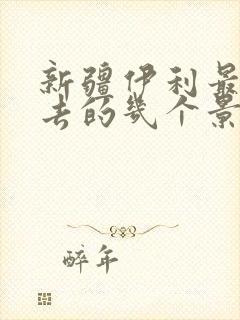 新疆伊利最
去的几个景
醉年